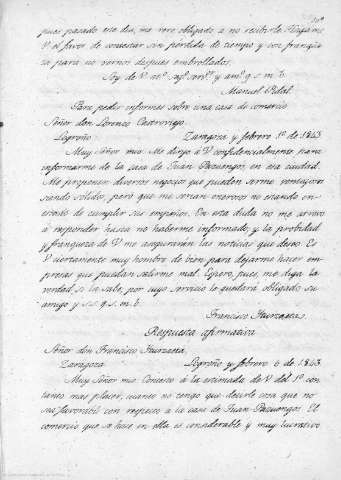 pues pasado ese dia, me vere obligado a no recibirle. Hagame
V. el favor de contestar sin perdida de tiempo y con franque
za para no vernos despues embrollados.
Soy de V. at.º seg.º serv.r y am.º q. s. m. b.
Manuel Vidal.
Para pedir informes sobre una casa de comercio
Señor don Lorenzo
Logroño Zaragoza y febrero 1.º de 1843
Muy Señor mio: Me dirijo á V. confidencialmente para
informarme de la casa de Juan Pazuengos, en esa ciudad.
Me proponen diversos negocios que pueden serme ventajosos
siendo sólidos, pero que me serian onerosos no estando en
estado de cumplir sus empeños. En esta duda no me atrevo
á responder hasta no haberme informado; y la probidad
y franqueza de V. me aseguraran las noticias que deseo. Es
V. ciertamente muy hombre de bien para dejarme hacer em
presas que puedan salirme mal. Espero, pues, me diga la
verdad si la sabe, por cuyo servicio le quedará obligado su
amigo y s. s. q. s. m. b.
Francisco Iturzaeta.
Respuesta afirmativa
Señor don Francisco Iturzaeta
Zaragoza Logroño y febrero 6 de 1843.
Muy Señor mio: Contesto á la estimada de V. del 1.º con
tanto mas placer, cuanto no tengo que decirle cosa que no
sea favorable con respecto a la casa de Juan Pazuengos. El
comercio que se hace en ella es considerable y muy lucrativo